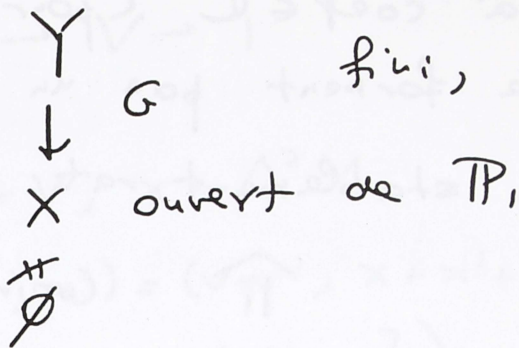 Y
↓ G fini,
X ouvert de ℙ₁
≠
∅